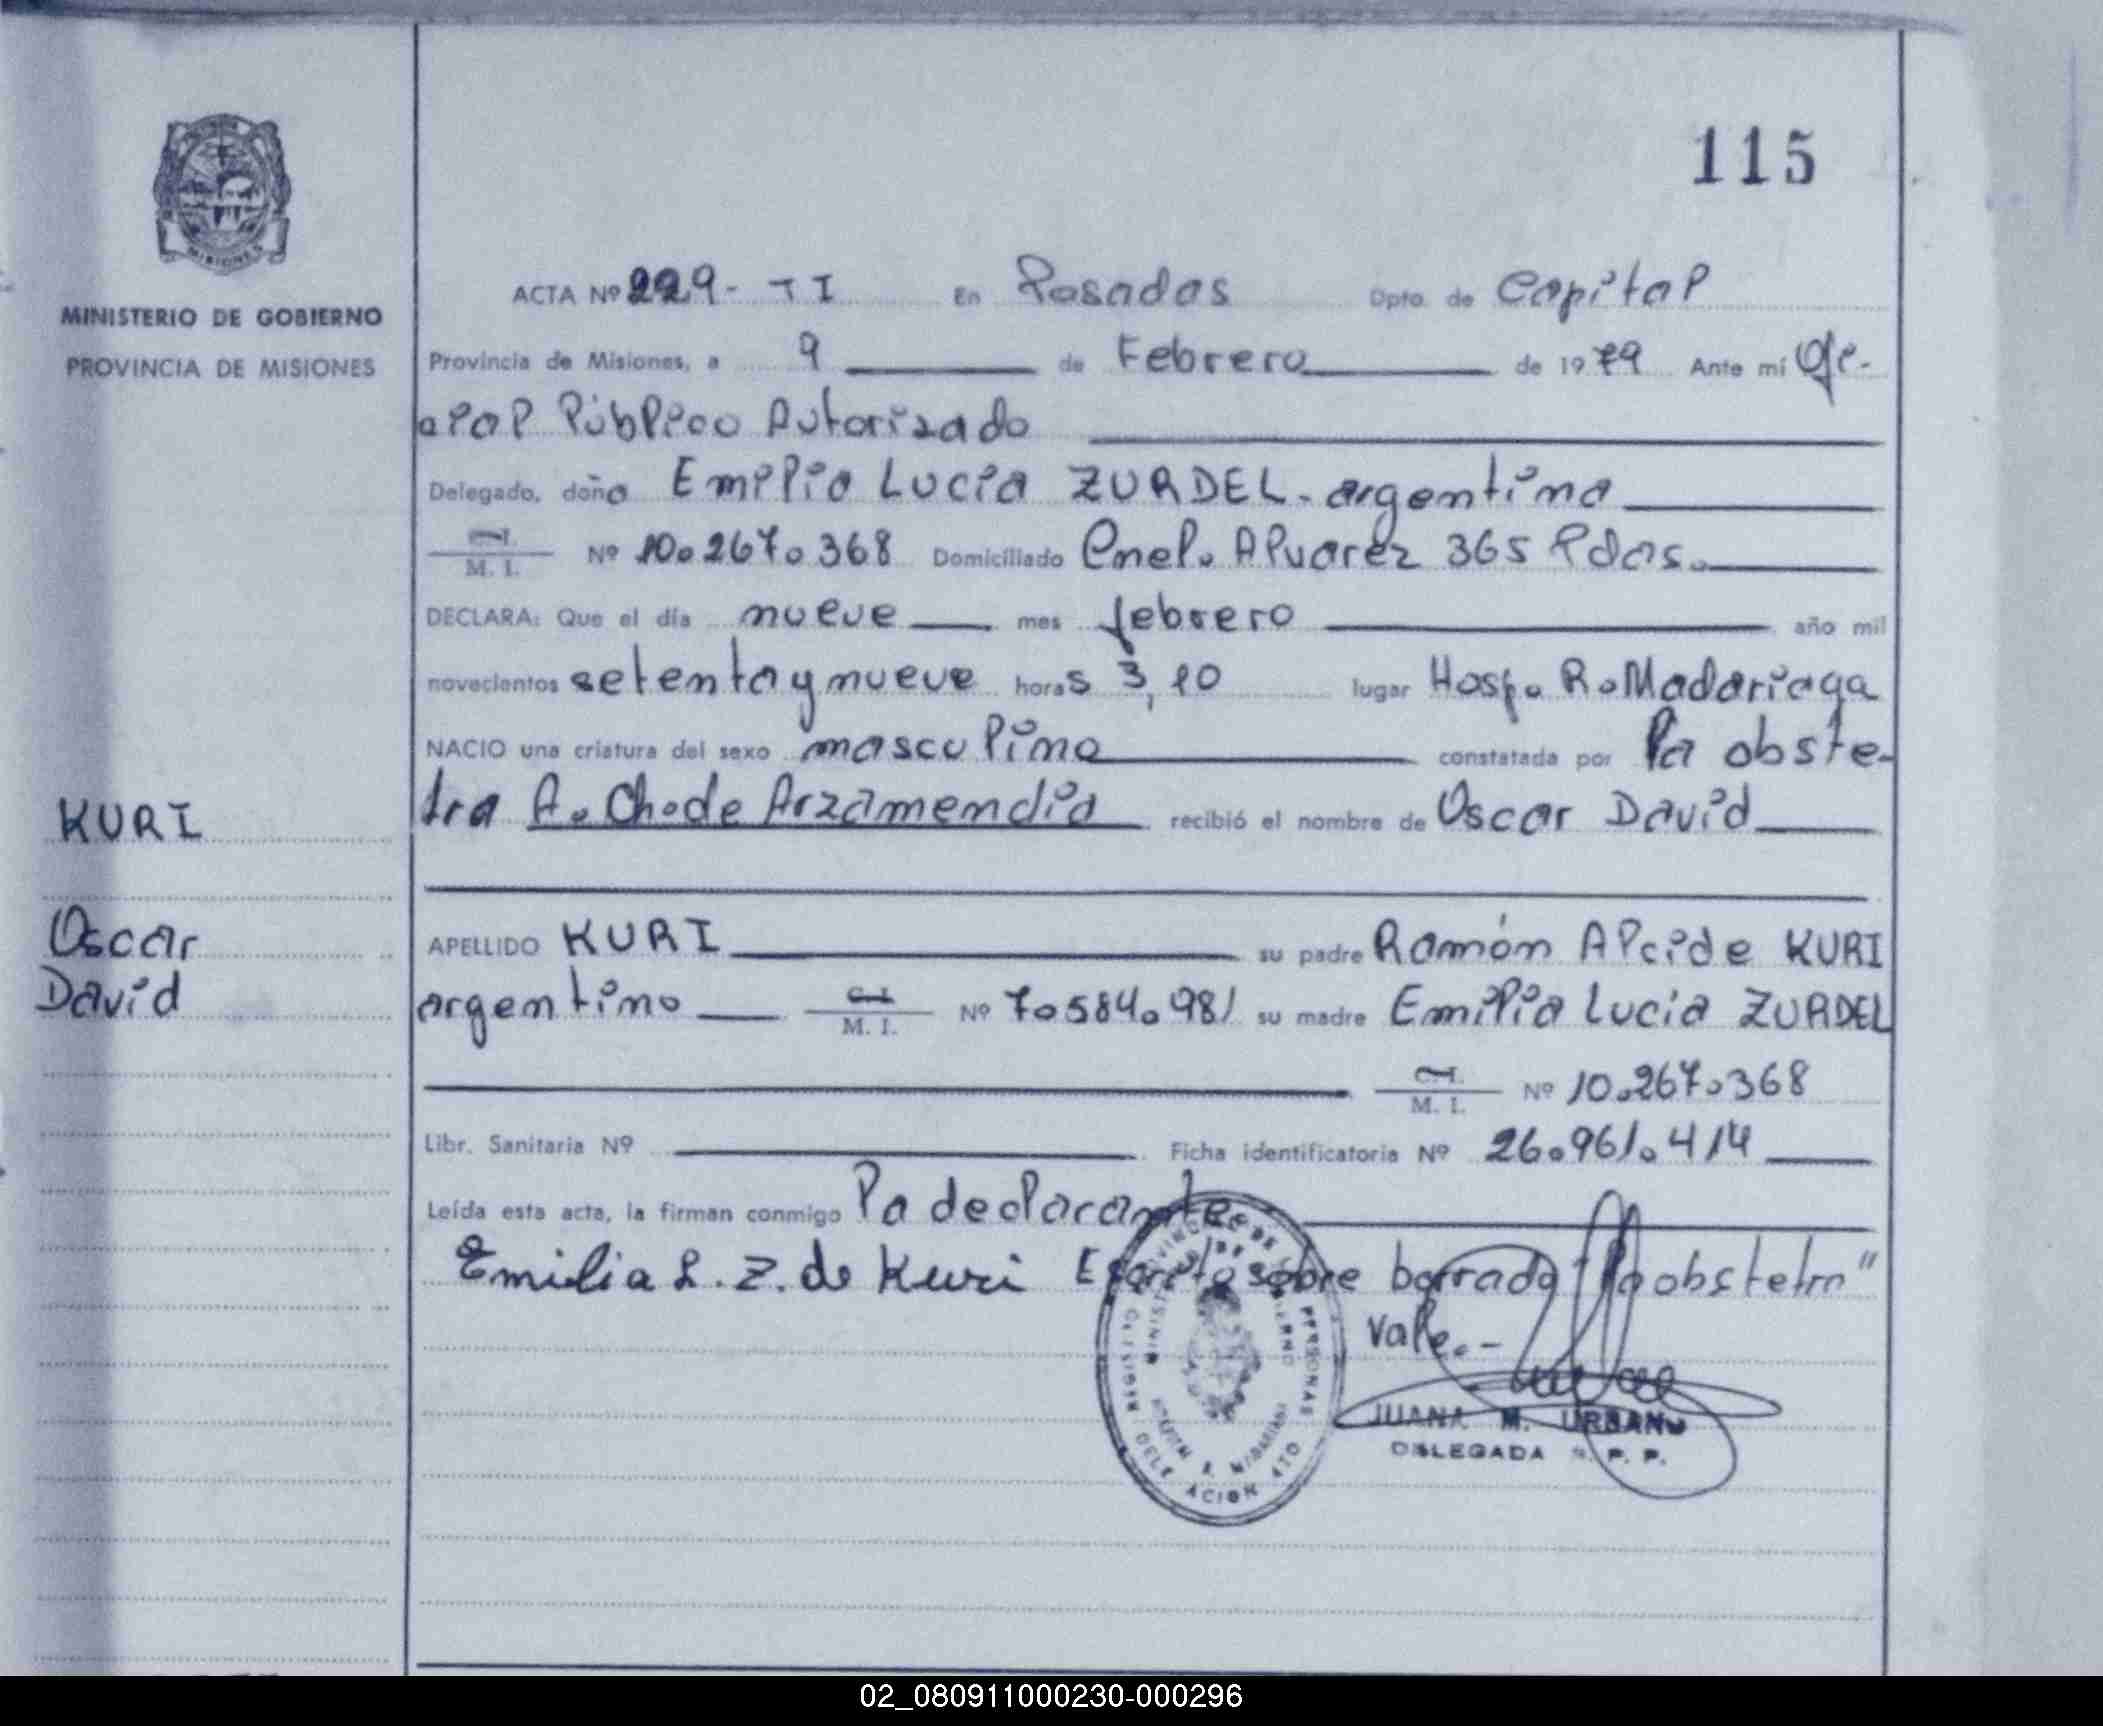 115
MINISTERIO DE GOBIERNO
PROVINCIA DE MISIONES
ACTA Nº 229- TI En Posadas Dpto. de Capital
Provincia de Misiones, a 9 de Febrero de 1979 Ante mí Ofi-
cial Público Autorizado
Delegado, doña Emilia Lucia ZURDEL. argentina
C.I. / M. I. Nº 10.267.368 Domiciliado Cnel. Alvarez 365 Pdas.
DECLARA: Que el día nueve mes febrero año mil
novecientos setenta y nueve horas 3,10 lugar Hosp. R. Madariaga
NACIO una criatura del sexo masculino constatada por la obste-
tra A. Ch. de Arzamendia recibió el nombre de Oscar David
KURI
Oscar
David
APELLIDO KURI su padre Ramón Alcide KURI
argentino C.I. / M. I. Nº 7.584.981 su madre Emilia Lucia ZURDEL
C.I. / M. I. Nº 10.267.368
Libr. Sanitaria Nº Ficha identificatoria Nº 26.961.414
Leída esta acta, la firman conmigo la declarante
Emilia L. Z. de Kuri Escrito sobre borrado "la obstetra"
Vale.-
JUANA M. URBANO
DELEGADA R. P. P.
02_080911000230-000296